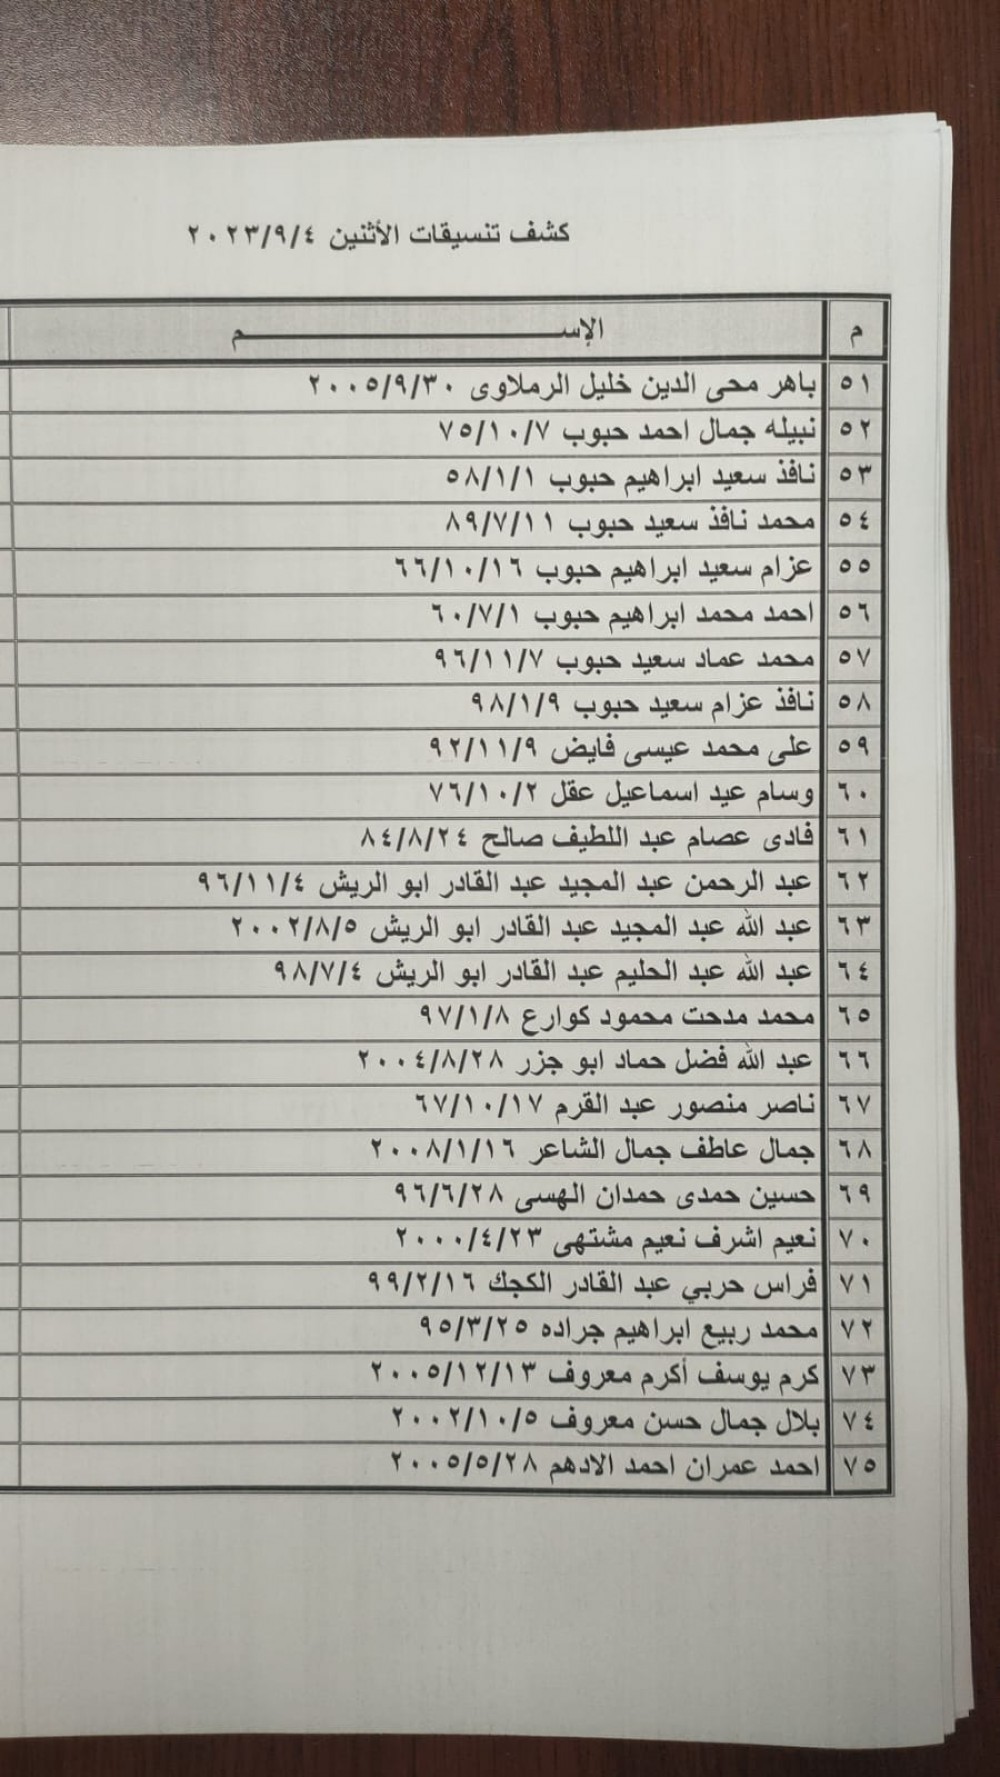 كشف تنسيقات الأثنين ٢٠٢٣/٩/٤
م الإســــم
٥١ باهر محى الدين خليل الرملاوى ٢٠٠٥/٩/٣٠
٥٢ نبيله جمال احمد حبوب ٧٥/١٠/٧
٥٣ نافذ سعيد ابراهيم حبوب ٥٨/١/١
٥٤ محمد نافذ سعيد حبوب ٨٩/٧/١١
٥٥ عزام سعيد ابراهيم حبوب ٦٦/١٠/١٦
٥٦ احمد محمد ابراهيم حبوب ٦٠/٧/١
٥٧ محمد عماد سعيد حبوب ٩٦/١١/٧
٥٨ نافذ عزام سعيد حبوب ٩٨/١/٩
٥٩ على محمد عيسى فايض ٩٢/١١/٩
٦٠ وسام عيد اسماعيل عقل ٧٦/١٠/٢
٦١ فادى عصام عبد اللطيف صالح ٨٤/٨/٢٤
٦٢ عبد الرحمن عبد المجيد عبد القادر ابو الريش ٩٦/١١/٤
٦٣ عبد الله عبد المجيد عبد القادر ابو الريش ٢٠٠٢/٨/٥
٦٤ عبد الله عبد الحليم عبد القادر ابو الريش ٩٨/٧/٤
٦٥ محمد مدحت محمود كوارع ٩٧/١/٨
٦٦ عبد الله فضل حماد ابو جزر ٢٠٠٤/٨/٢٨
٦٧ ناصر منصور عبد القرم ٦٧/١٠/١٧
٦٨ جمال عاطف جمال الشاعر ٢٠٠٨/١/١٦
٦٩ حسين حمدى حمدان الهسى ٩٦/٦/٢٨
٧٠ نعيم اشرف نعيم مشتهى ٢٠٠٠/٤/٢٣
٧١ فراس حربي عبد القادر الكجك ٩٩/٢/١٦
٧٢ محمد ربيع ابراهيم جراده ٩٥/٣/٢٥
٧٣ كرم يوسف أكرم معروف ٢٠٠٥/١٢/١٣
٧٤ بلال جمال حسن معروف ٢٠٠٢/١٠/٥
٧٥ احمد عمران احمد الادهم ٢٠٠٥/٥/٢٨